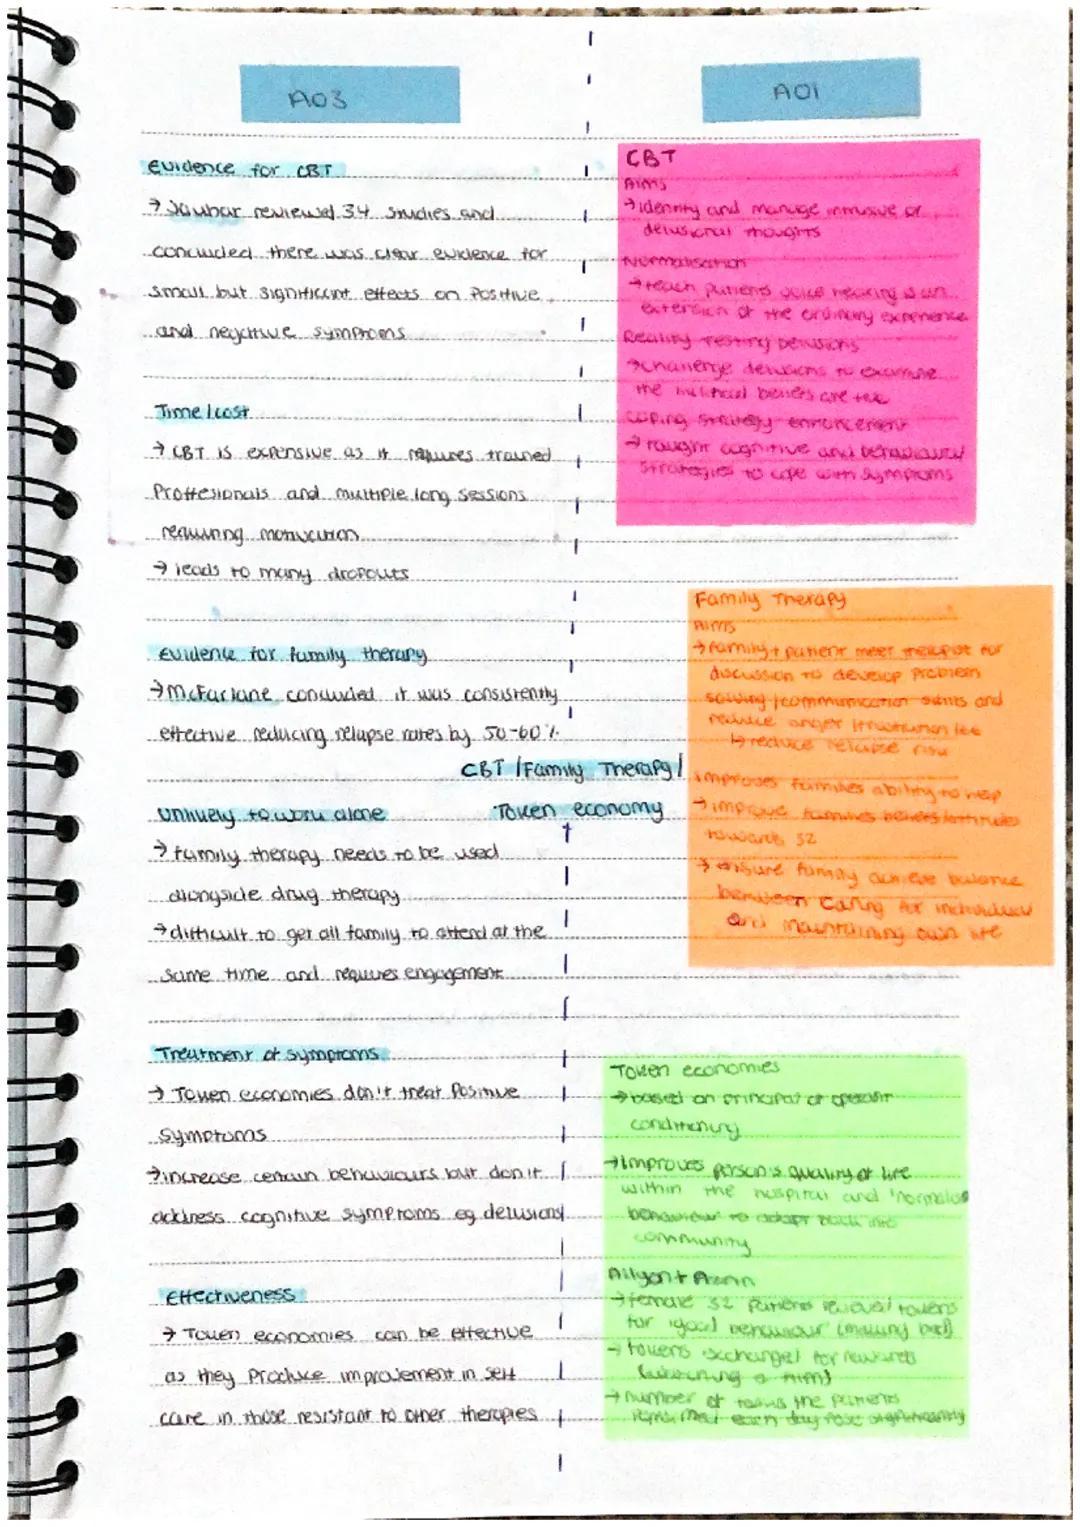 AO3
Evidence for CBT
→ Jauhar reviewed 34 studies and
concluded there was clear evidence for
small but significant effects on positive
and negative symptoms
Time/cost
→ CBT is expensive as it requires trained
Proffesionals and multiple long sessions
requiring motivation
→ leads to many dropouts
Evidence for family therapy
→ McFarlane concluded it was consistently
effective reducing relapse rates by 50-60%
CBT / Family Therapy /
Token economy
Unlikely to work alone
→ family therapy needs to be used
alongside drug therapy
→ difficult to get all family to attend at the
same time and requires engagement
Treatment of symptoms
→ Token economies don't treat Positive
symptoms
→ increase certain behaviours but don't
address cognitive symptoms eg delusions
Effectiveness
→ Token economies can be effective
as they produce improvement in self
care in those resistant to other therapies
AO1
CBT
Aims
→ identify and manage intrusive or
delusional thoughts
Normalisation
→ teach patients voice hearing is an
extension of the ordinary experience
Reality testing delusions
→ challenge delusions to examine
the beliefs are true
coping strategy enhancement
→ taught cognitive and behavioural
strategies to cope with symptoms
Family Therapy
Aims
→ family + patient meet therapist for
discussion to develop problem
solving / communication skills and
reduce anger / frustration
↳ reduce relapse risk
improves families ability to help
→ improve families beliefs/attitudes
towards SZ
→ ensure family achieve balance
between caring for individual
and maintaining own life
Token economies
→ based on principal of operant
conditioning
→ improves person's quality of life
within the hospital and 'normalise'
behaviour to adapt back into
community
Allyon + Azrin
→ female SZ patients received tokens
for 'good' behaviour (making bed)
→ tokens exchanged for rewards
(watching a film)
→ number of tasks the patients
performed each day rose significantly